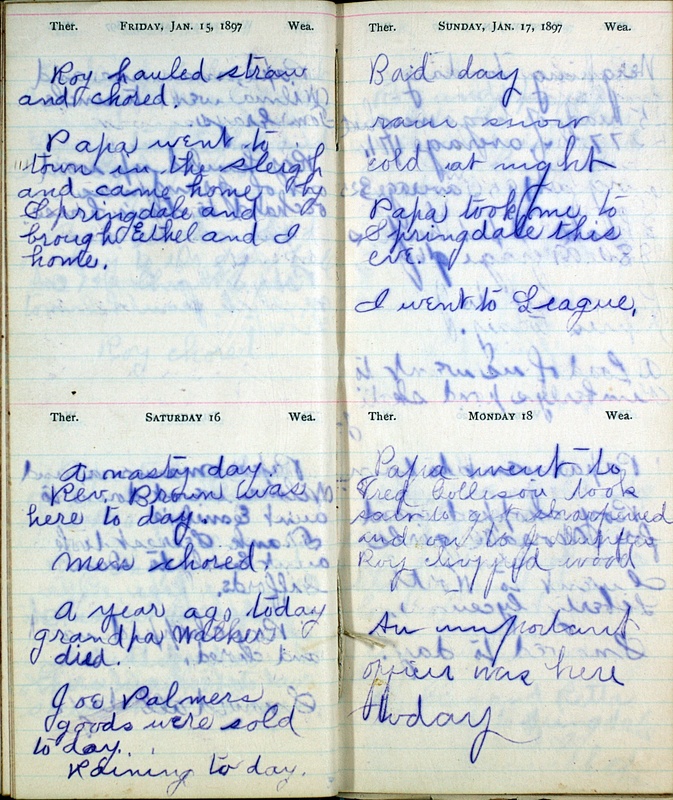 Ther. FRIDAY, JAN. 15, 1897 Wea.
Roy hauled straw
and chored.
Papa went to
town in the sleigh
and came home by
Springdale and
brough Ethel and I
home.
Ther. SATURDAY 16 Wea.
A nasty day.
Rev. Brown was
here to day.
Men chored.
A year ago today
grandpa Walker
died.
Joe Palmers
goods were sold
to day.
Raining to day.
Ther. SUNDAY, JAN. 17, 1897 Wea.
Bad day
rain snow
cold at night
Papa took me to
Springdale this
eve.
I went to League.
Ther. MONDAY 18 Wea.
Papa went to
Fred Collison took
and on to
Roy chopped wood
An important
officer was here
today